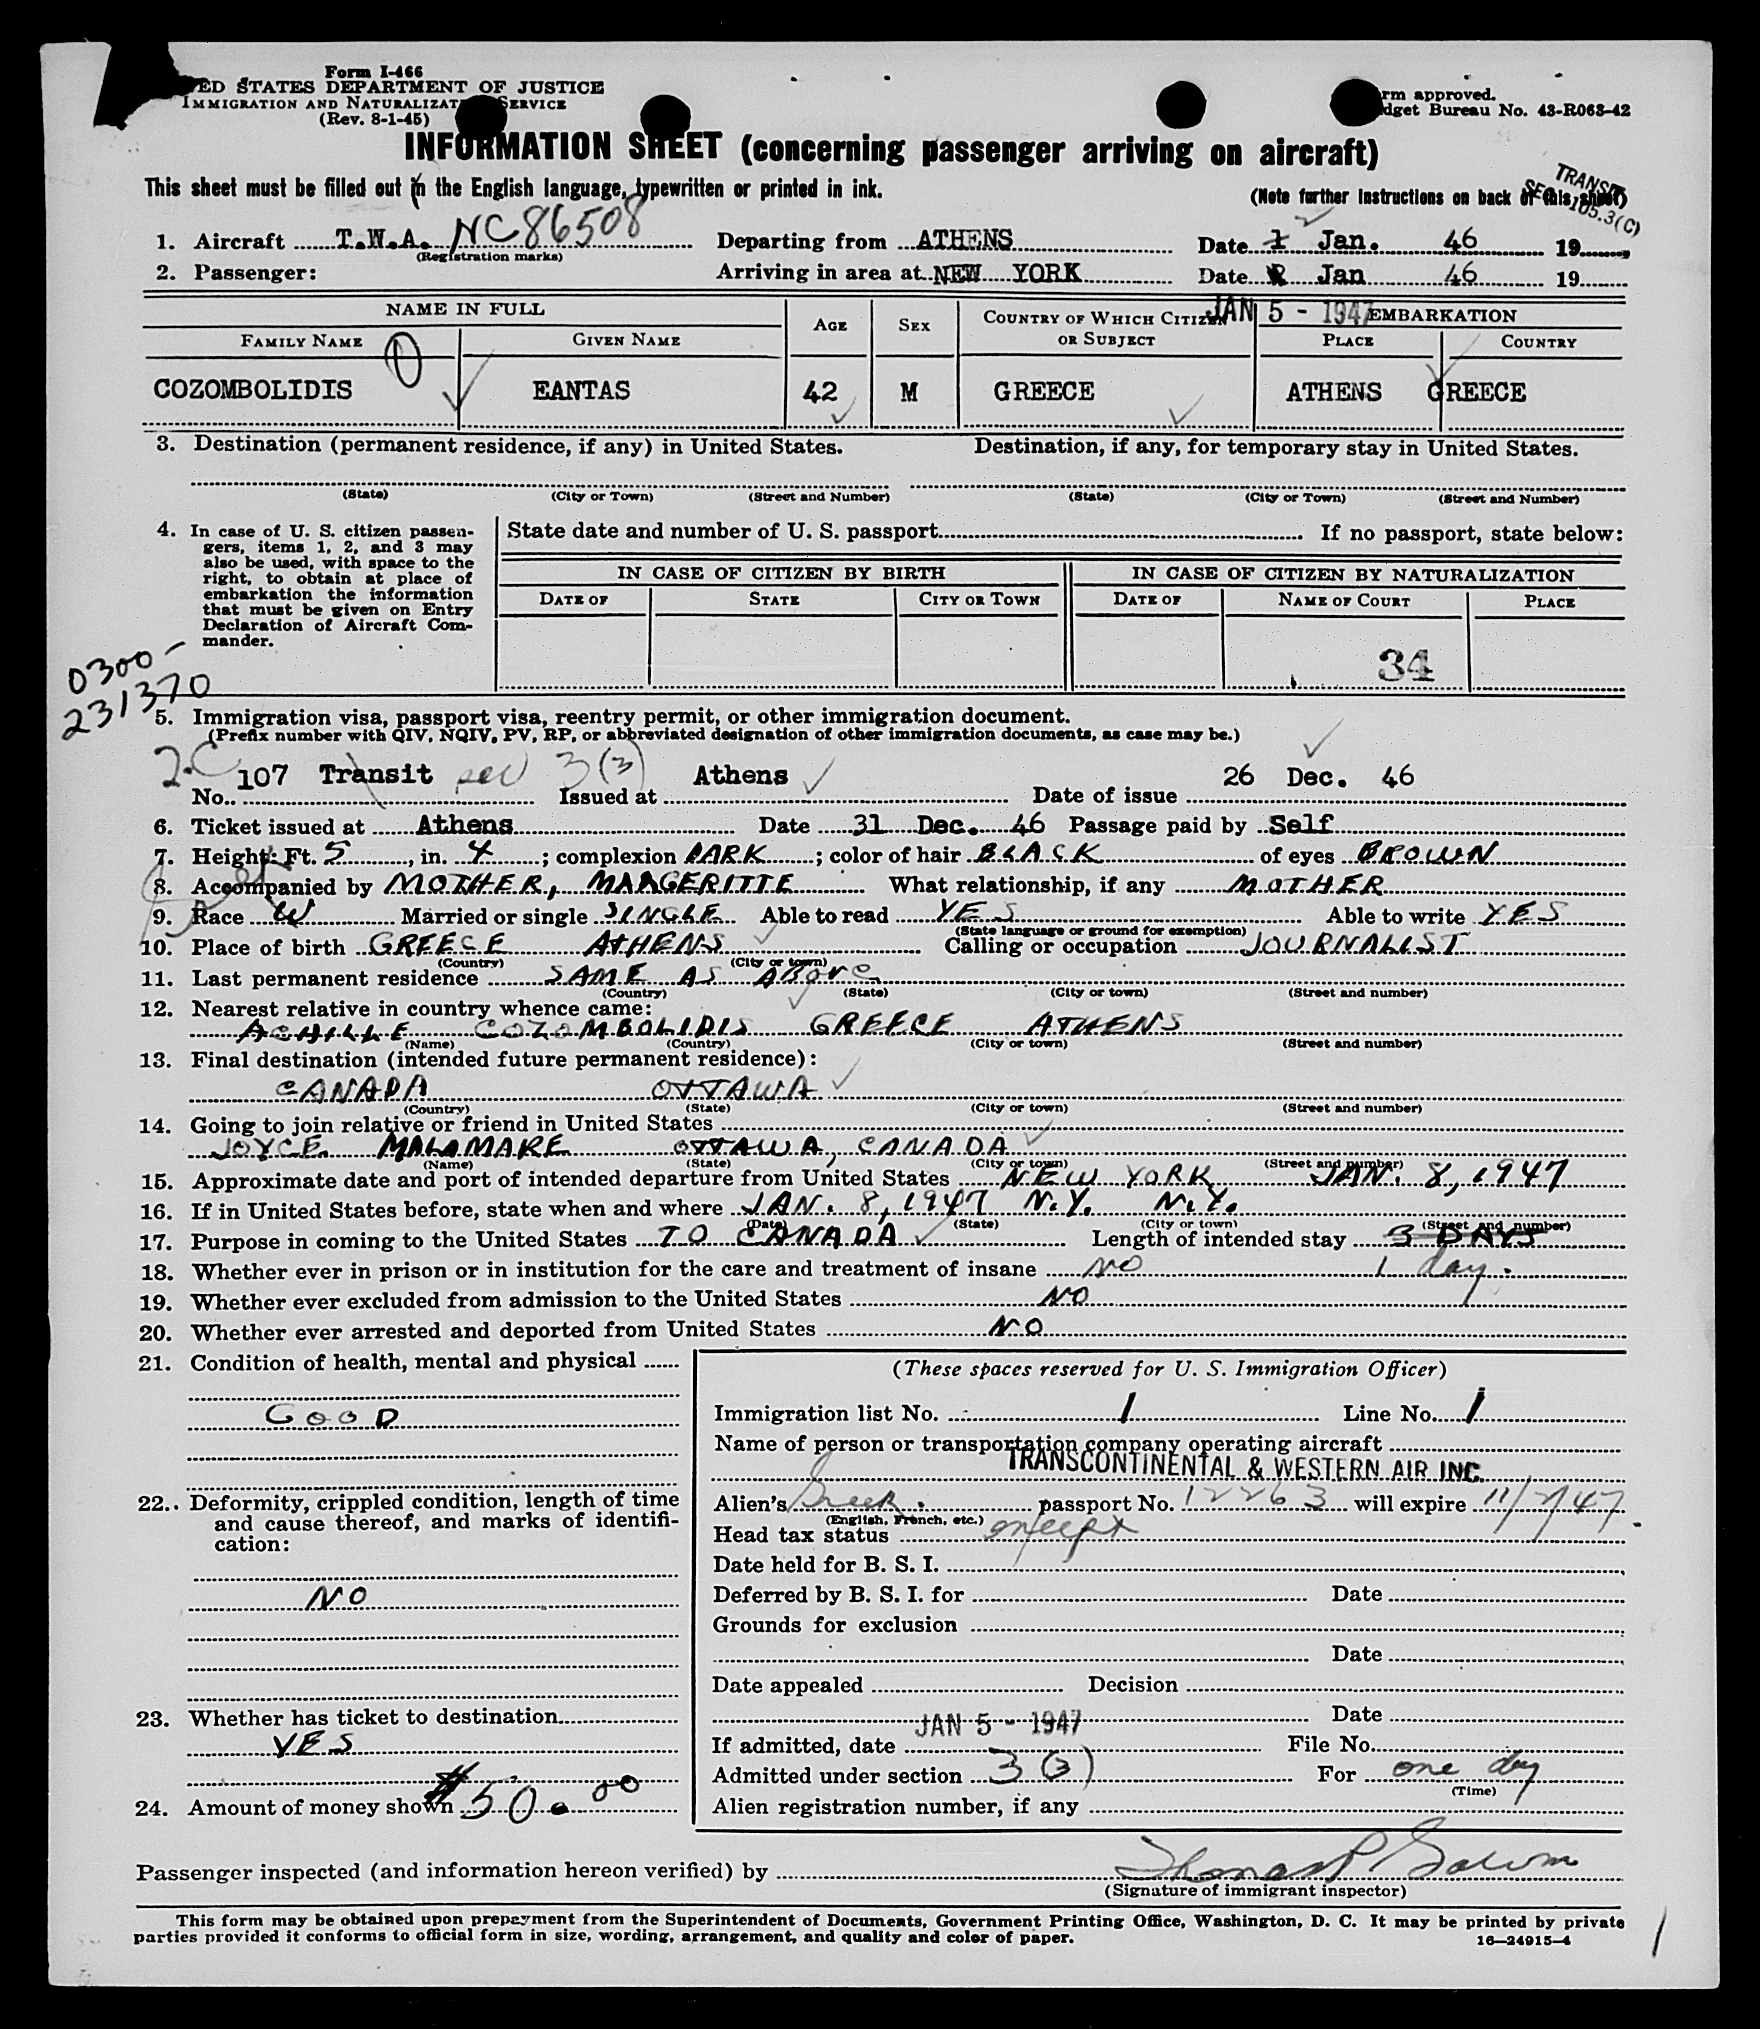 Form I-466
ED STATES DEPARTMENT OF JUSTICE
IMMIGRATION AND NATURALIZAT SERVICE
(Rev. 8-1-45)
rm approved.
dget Bureau No. 43-R063-42
INFORMATION SHEET (concerning passenger arriving on aircraft)
This sheet must be filled out in the English language, typewritten or printed in ink.
(Note further instructions on back of this sheet)
TRANSIT
SEC. 105.3(C)
1. Aircraft T.W.A. NC86508 Departing from ATHENS Date 2 Jan. 46 19
(Registration marks)
2. Passenger: Arriving in area at NEW YORK Date Jan 46 19
JAN 5 - 1947
NAME IN FULL AGE SEX COUNTRY OF WHICH CITIZEN OR SUBJECT EMBARKATION
FAMILY NAME GIVEN NAME PLACE COUNTRY
COZOMBOLIDIS EANTAS 42 M GREECE ATHENS GREECE
3. Destination (permanent residence, if any) in United States. Destination, if any, for temporary stay in United States.
(State) (City or Town) (Street and Number) (State) (City or Town) (Street and Number)
4. In case of U. S. citizen passen-
gers, items 1, 2, and 3 may
also be used, with space to the
right, to obtain at place of
embarkation the information
that must be given on Entry
Declaration of Aircraft Com-
mander.
State date and number of U. S. passport If no passport, state below:
IN CASE OF CITIZEN BY BIRTH IN CASE OF CITIZEN BY NATURALIZATION
DATE OF STATE CITY OR TOWN DATE OF NAME OF COURT PLACE
34
0300-
231370
5. Immigration visa, passport visa, reentry permit, or other immigration document.
(Prefix number with QIV, NQIV, PV, RP, or abbreviated designation of other immigration documents, as case may be.)
107 Transit 3(3) Athens 26 Dec. 46
No. Issued at Date of issue
6. Ticket issued at Athens Date 31 Dec. 46 Passage paid by Self
7. Height: Ft. 5, in. 4; complexion DARK; color of hair BLACK of eyes BROWN
8. Accompanied by MOTHER, MARGERITTE What relationship, if any MOTHER
9. Race W Married or single SINGLE Able to read YES Able to write YES
(State language or ground for exemption)
10. Place of birth GREECE ATHENS Calling or occupation JOURNALIST
(Country) (City or town)
11. Last permanent residence SAME AS ABOVE
(Country) (State) (City or town) (Street and number)
12. Nearest relative in country whence came:
ACHILLE COZOMBOLIDIS GREECE ATHENS
(Name) (Country) (City or town) (Street and number)
13. Final destination (intended future permanent residence):
CANADA OTTAWA
(Country) (State) (City or town) (Street and number)
14. Going to join relative or friend in United States
JOYCE MALAMAKE OTTAWA, CANADA
(Name) (State) (City or town) (Street and number)
15. Approximate date and port of intended departure from United States NEW YORK JAN. 8, 1947
16. If in United States before, state when and where JAN. 8, 1947 N.Y. N.Y.
(Date) (State) (City or town) (Street and number)
17. Purpose in coming to the United States TO CANADA Length of intended stay 3 DAYS
18. Whether ever in prison or in institution for the care and treatment of insane NO 1 day.
19. Whether ever excluded from admission to the United States NO
20. Whether ever arrested and deported from United States NO
21. Condition of health, mental and physical
GOOD
22. Deformity, crippled condition, length of time
and cause thereof, and marks of identifi-
cation:
NO
23. Whether has ticket to destination
YES
24. Amount of money shown $50.00
(These spaces reserved for U. S. Immigration Officer)
Immigration list No. 1 Line No. 1
Name of person or transportation company operating aircraft
TRANSCONTINENTAL & WESTERN AIR INC.
Alien's Greek passport No. 12263 will expire 11/7/47
(English, French, etc.)
Head tax status exempt
Date held for B. S. I.
Deferred by B. S. I. for Date
Grounds for exclusion
Date
Date appealed Decision
Date
JAN 5 - 1947
If admitted, date File No.
Admitted under section 3(3) For one day
(Time)
Alien registration number, if any
Passenger inspected (and information hereon verified) by Thomas P.
(Signature of immigrant inspector)
This form may be obtained upon prepayment from the Superintendent of Documents, Government Printing Office, Washington, D. C. It may be printed by private
parties provided it conforms to official form in size, wording, arrangement, and quality and color of paper.
16—24915-4
1